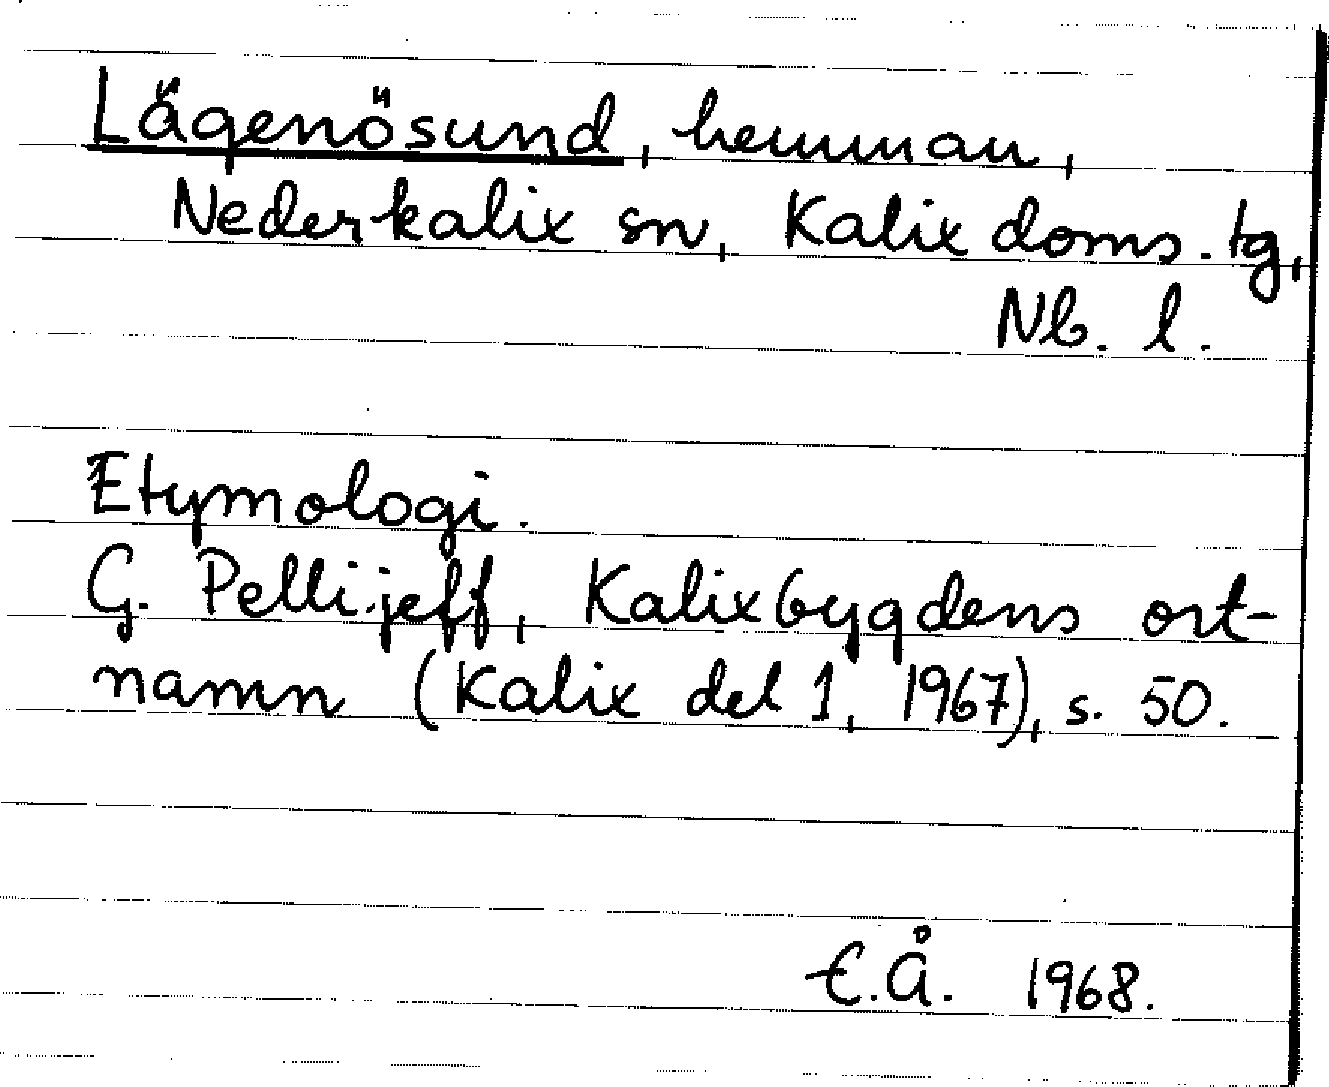 Lägenösund, hemman,
Nederkalix sn, Kalix doms. tg,
Nb. l.
Etymologi.
G. Pellijeff, Kalixbygdens ort-
namn (Kalix del 1, 1967), s. 50.
E.Å. 1968.